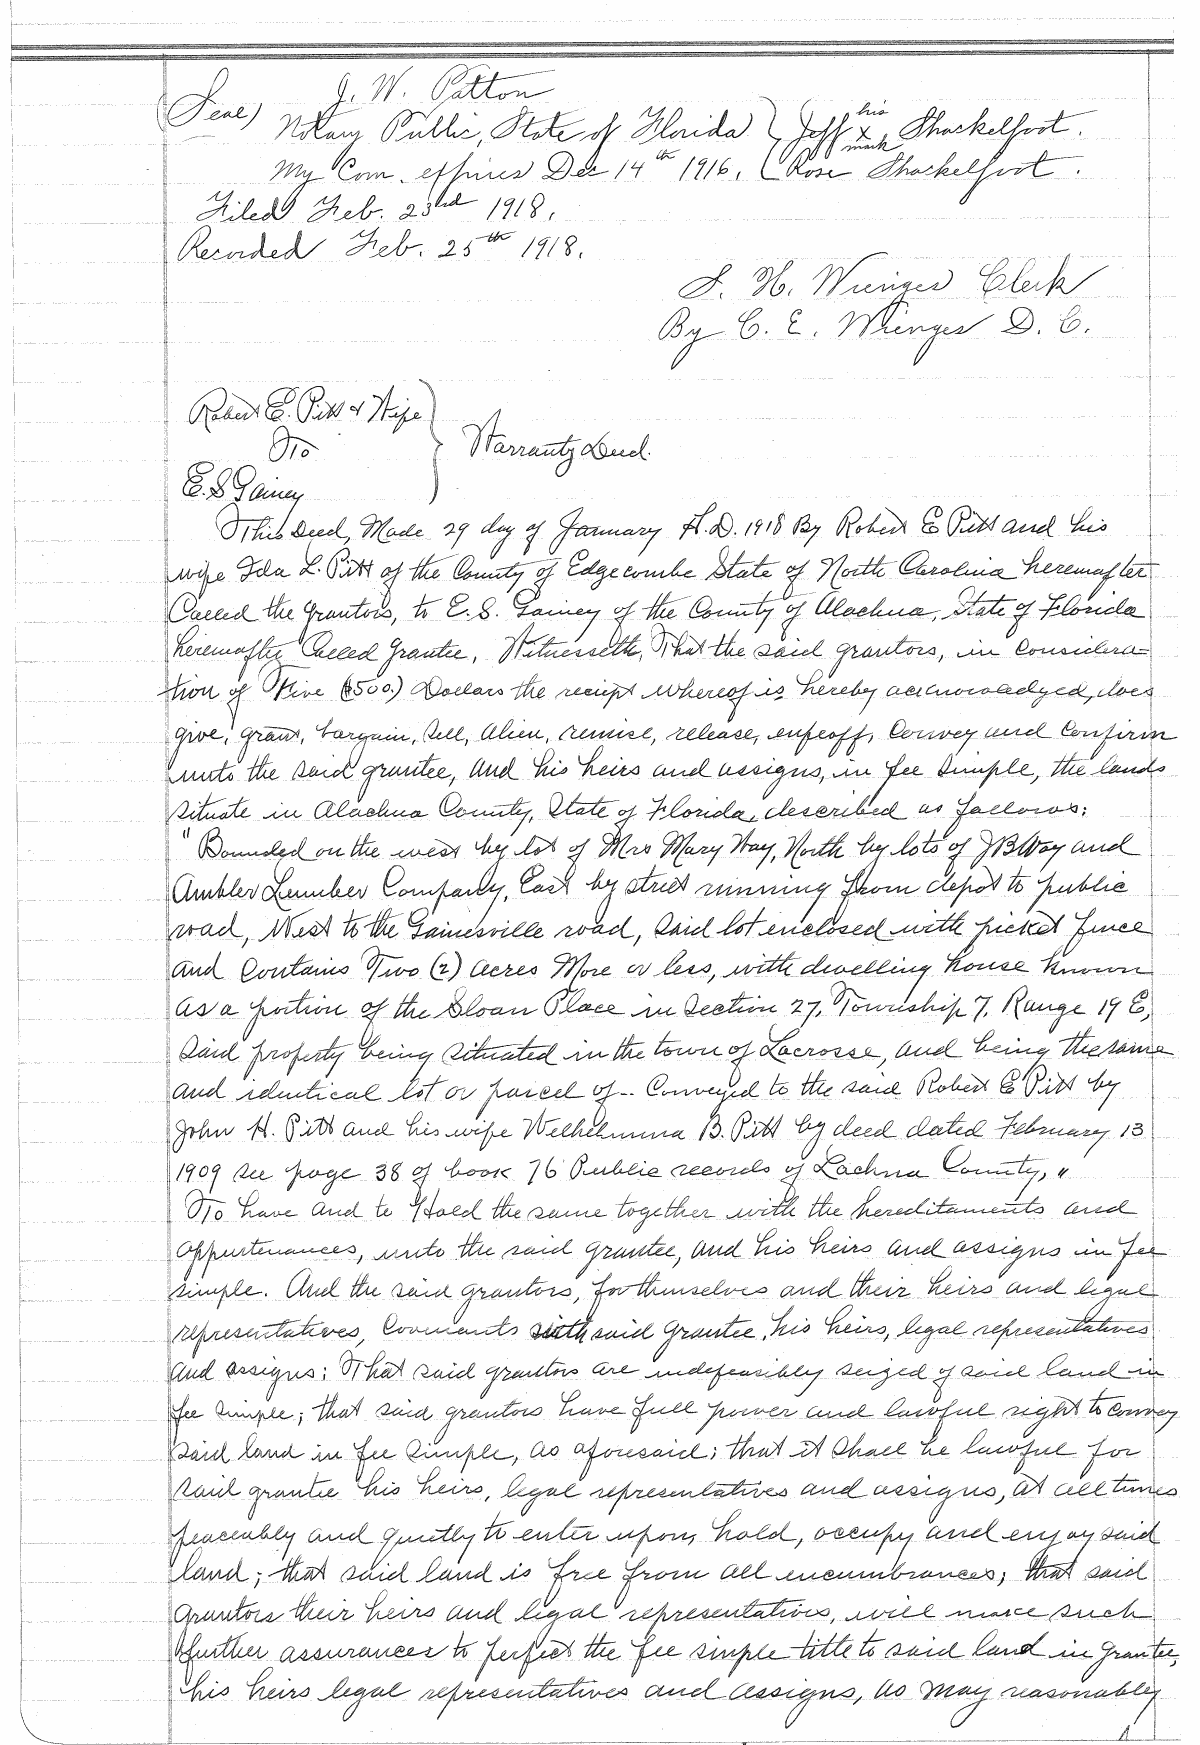 J. W. Patton
(Seal) Notary Public, State of Florida } Jeff his x mark Shackelfoot.
My Com. expires Dec 14th 1916. ( Rose Shackelfoot.
Filed Feb. 23rd 1918.
Recorded Feb. 25th 1918.
S. H. Wienges Clerk
By C. E. Wienges D. C.
Robert E. Pitt & Wife
To
Warranty Deed.
E. S Gainey
This Deed, Made 29 day of January A.D. 1918 By Robert E Pitt and his
wife Ida L. Pitt of the County of Edgecombe State of North Carolina hereinafter
Called the grantors, to E. S. Gainey of the County of Alachua, State of Florida
hereinafter Called Grantee, Witnesseth, That the said grantors, in Considera=
tion of Five ($500.) Dollars the reciept whereof is hereby acknowledged, does
give, grant, bargain, sell, alien, remise, release, enfeoff, Convey and Confirm
unto the said grantee, and his heirs and assigns, in fee simple, the lands
situate in Alachua County, State of Florida, described as follows:
"Bounded on the west by lot of Mrs Mary Way, North by lots of J B Way and
Ambler Lumber Company, East by street running from depot to public
road, West to the Gainesville road, said lot enclosed with picket fence
and Contains Two (2) acres More or less, with dwelling house known
as a portion of the Sloan Place in Section 27, Township 7, Range 19 E,
Said property being situated in the town of Lacrosse, and being the same
and identical lot or parcel of-- Conveyed to the said Robert E Pitt by
John H. Pitt and his wife Welhelmina B. Pitt by deed dated February 13
1909 see page 38 of book 76 Public records of Lachua County,"
To have and to Hold the same together with the hereditaments and
appurtenances, unto the said grantee, and his heirs and assigns in fee
simple. And the said grantors, for themselves and their heirs and legal
representatives, Covenants with said grantee, his heirs, legal representatives
and assigns: That said grantors are indefeasibly seized of said land in
fee simple; that said grantors have full power and lawful right to convey
said land in fee simple, as aforesaid; that it shall be lawful for
said grantee his heirs, legal representatives and assigns, at all times
peaceably and quietly to enter upon, hold, occupy and enjoy said
land; that said land is free from all encumbrances; that said
grantors their heirs and legal representatives, will make such
further assurances to perfect the fee simple title to said land in grantee,
his heirs legal representatives and assigns, as may reasonably